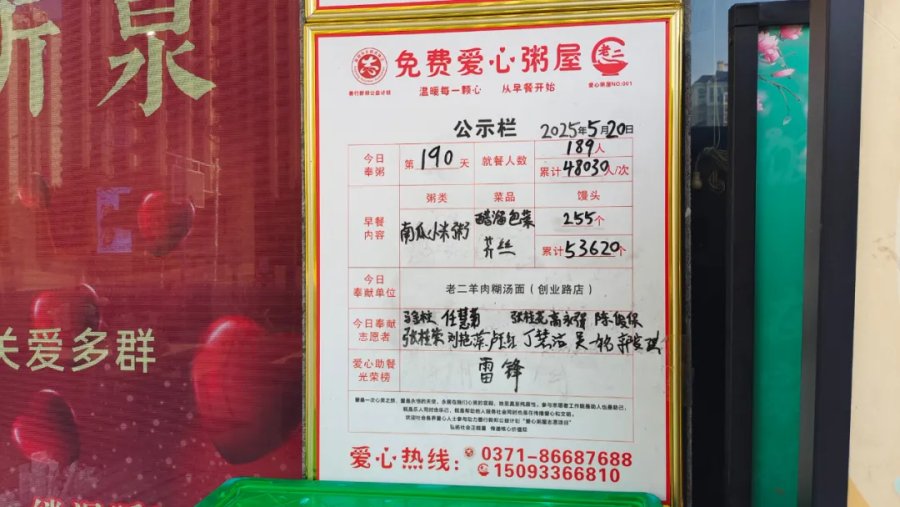 泉
关爱多群
免费爱心粥屋
老二
善行郑州公益计划
爱心粥屋NO:001
温暖每一颗心 从早餐开始
公示栏 2025年5月20日
今日奉粥 第190天 就餐人数 189人
累计48030人/次
早餐内容 粥类 菜品 馒头
南瓜小米粥 醋溜包菜 255个
芥丝 累计53620个
今日奉献单位 老二羊肉糊汤面（创业路店）
今日奉献志愿者 任慧菊 张桂花 高永强 陈俊保
张桂荣 刘艳萍 卢红 丁慧洁
爱心助餐光荣榜 雷锋
弘扬社会正能量 传递核心价值观
爱心热线：0371-86687688
15093366810